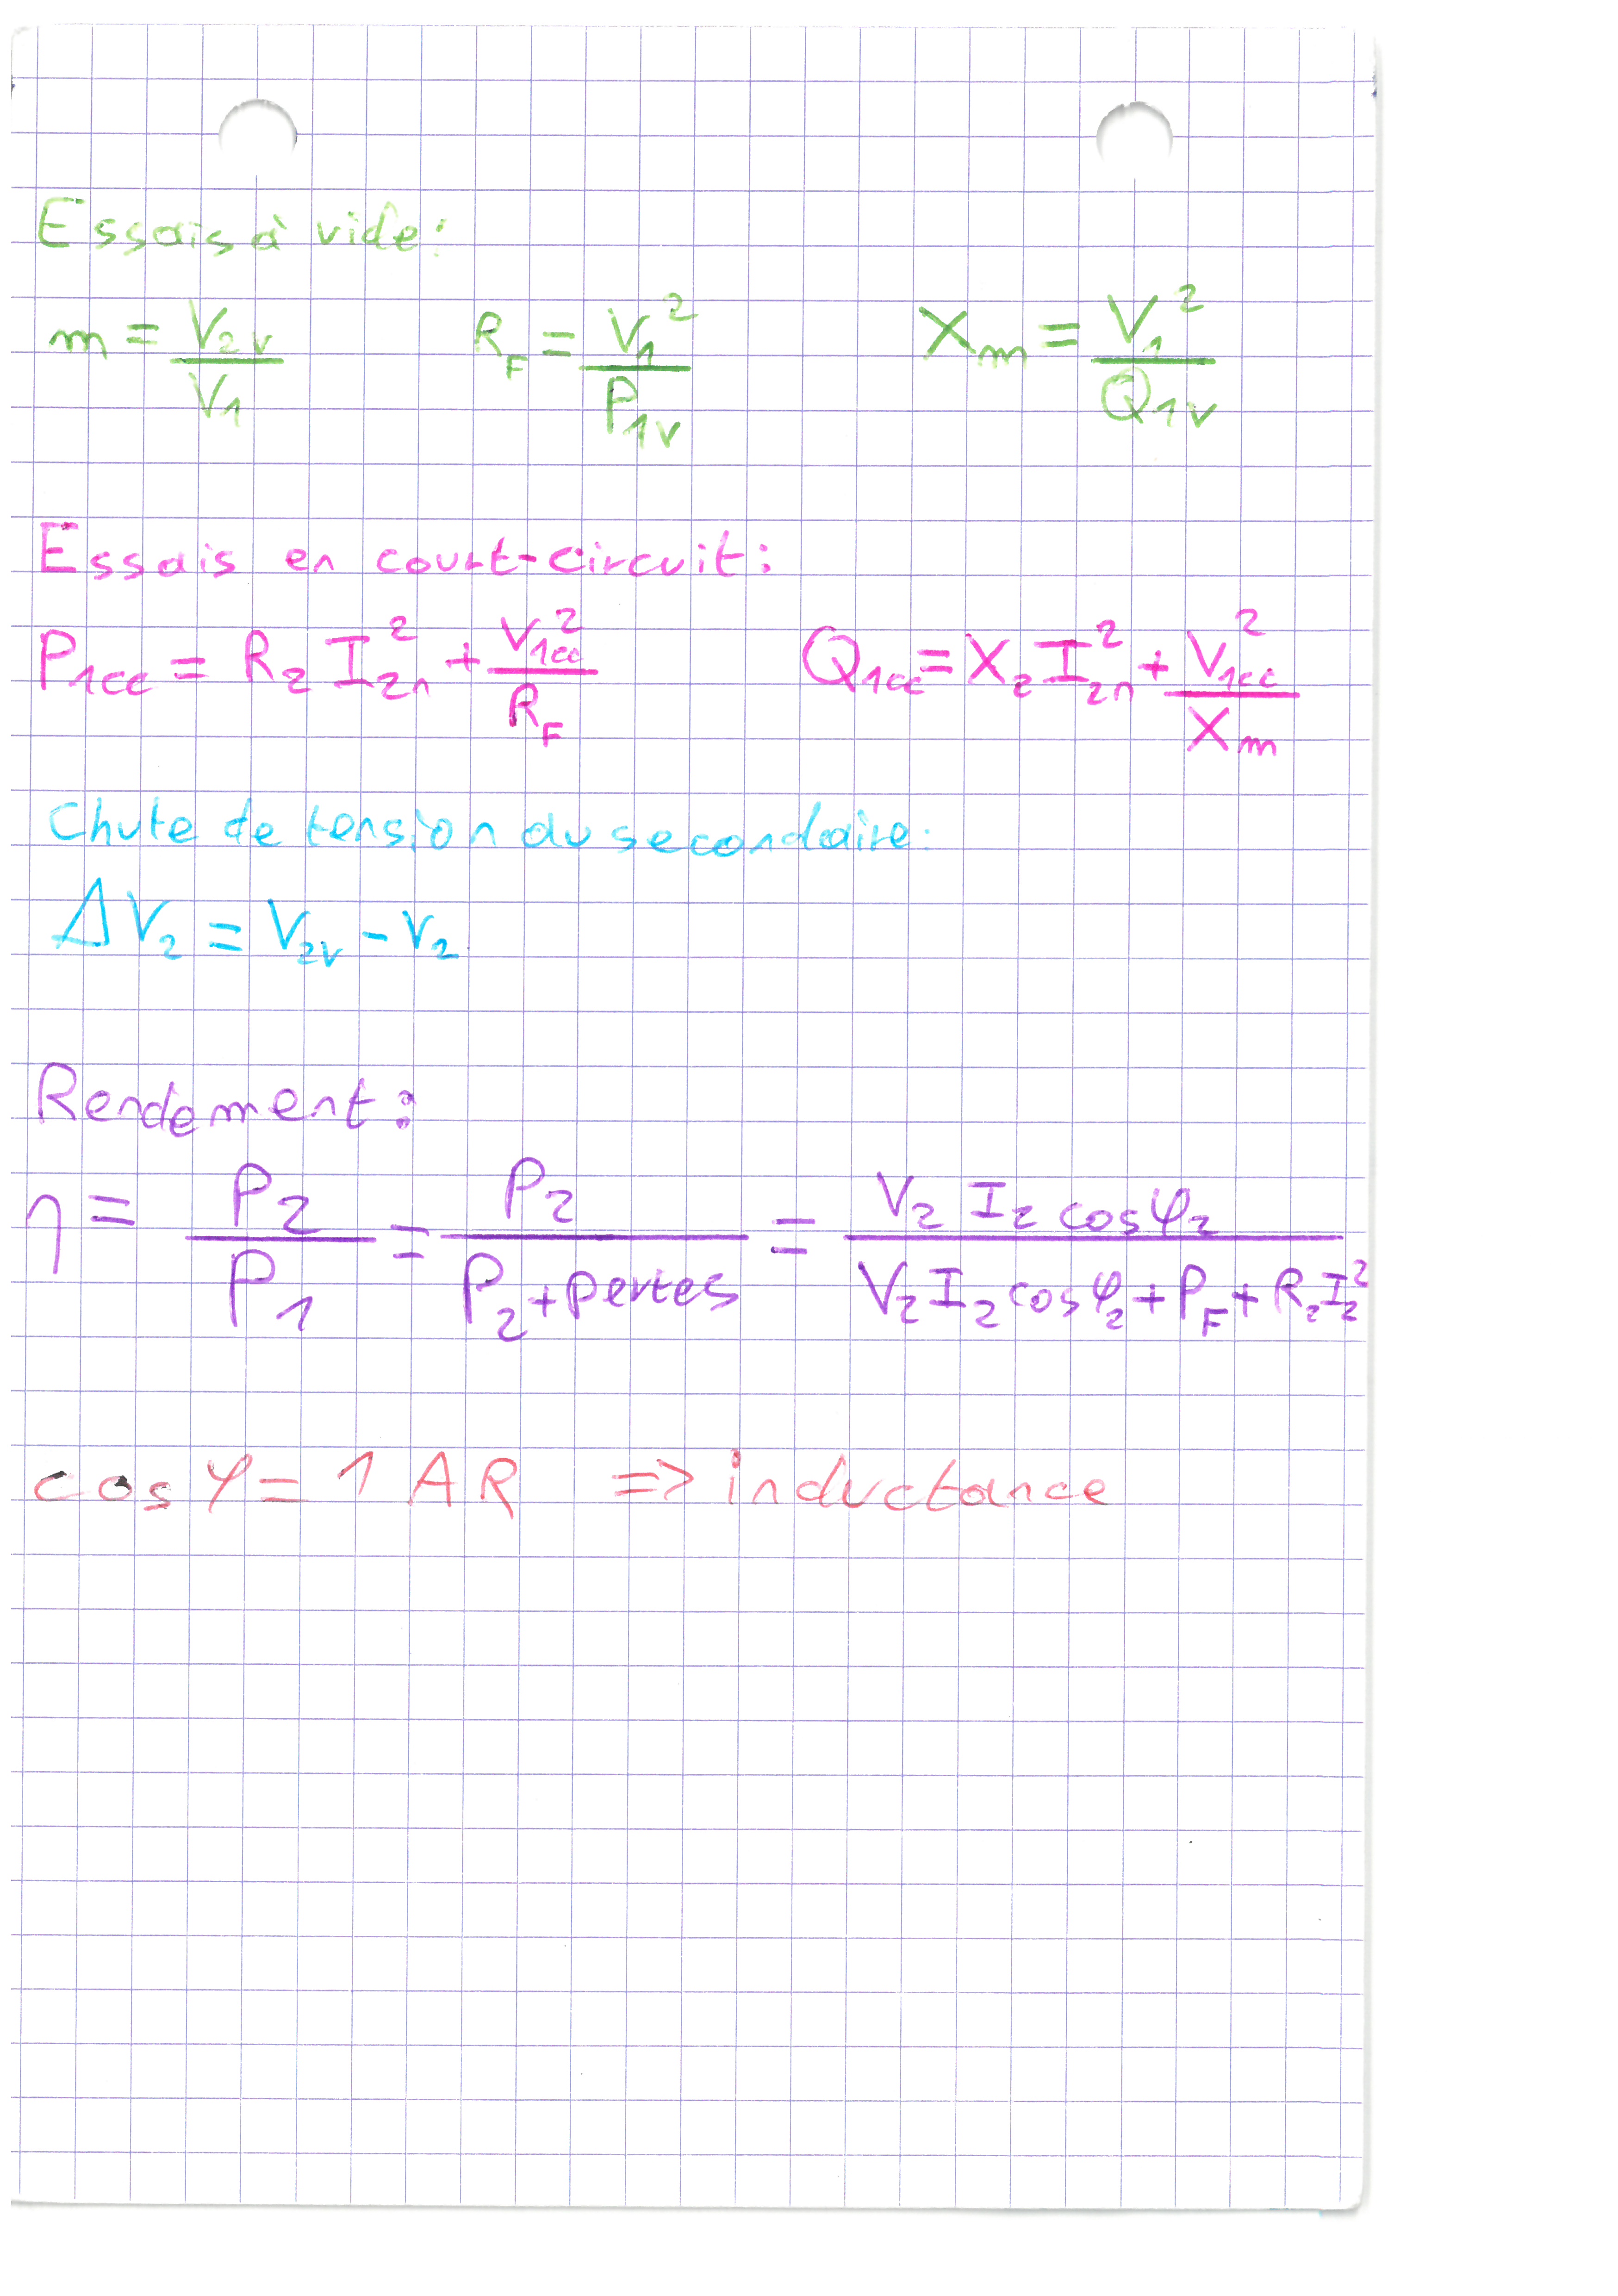 Essais à vide:
m = V_{2v} / V_1    R_F = V_1^2 / P_{1v}    X_m = V_1^2 / Q_{1v}
Essais en court-circuit:
P_{1cc} = R_2 I_{2n}^2 + V_{1cc}^2 / R_F    Q_{1cc} = X_2 I_{2n}^2 + V_{1cc}^2 / X_m
Chute de tension du secondaire:
ΔV_2 = V_{2v} - V_2
Rendement:
η = P_2 / P_1 = P_2 / (P_2 + pertes) = V_2 I_2 cos φ_2 / (V_2 I_2 cos φ_2 + P_F + R_2 I_2^2)
cos φ = 1 AR => inductance